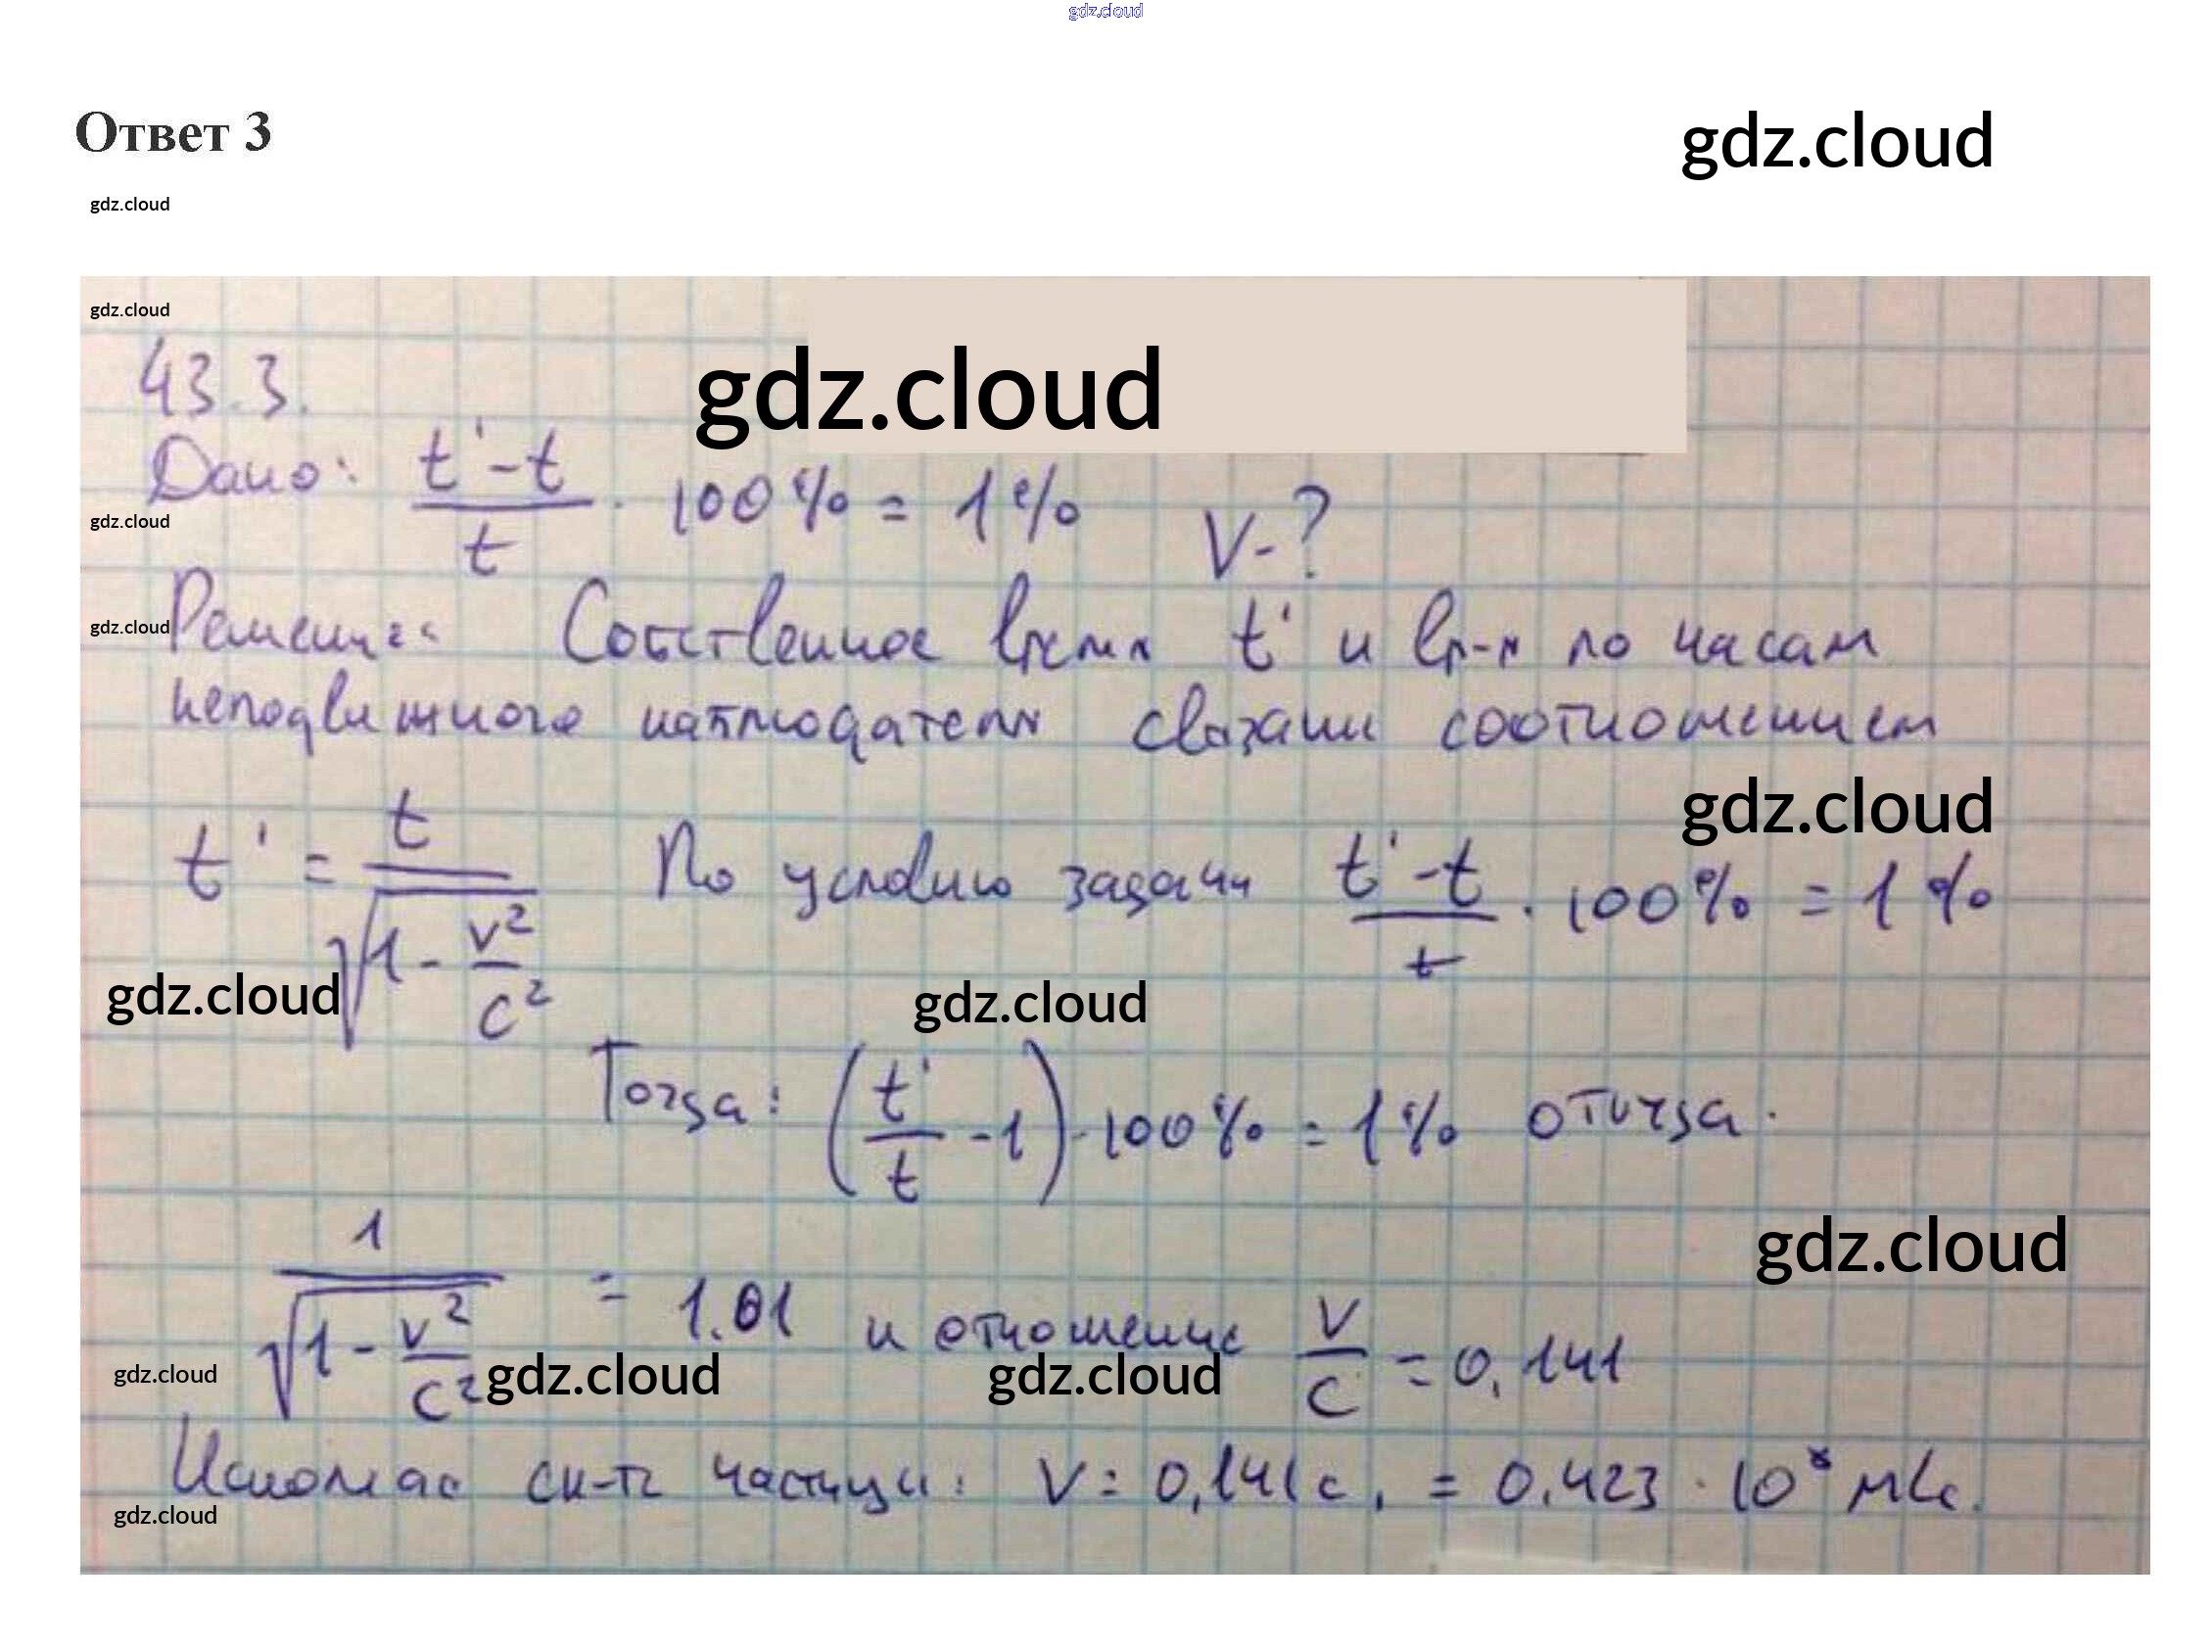 gdz.cloud
Ответ 3
gdz.cloud
gdz.cloud
gdz.cloud
43.3.
gdz.cloud
Дано: (t' - t)/t · 100% = 1% V - ?
gdz.cloud
gdz.cloud
Решение: Собственное время t' и вр-я по часам
неподвижного наблюдателя связаны соотношением
gdz.cloud
t' = t/√(1 - v²/c²) По условию задачи (t' - t)/t · 100% = 1%
gdz.cloud
gdz.cloud
Тогда: (t'/t - 1) · 100% = 1% откуда.
gdz.cloud
1/√(1 - v²/c²) = 1.01 и отношение v/c = 0,141
gdz.cloud
gdz.cloud
gdz.cloud
Искомая ск-ть частицы: V = 0,141c, = 0.423 · 10⁸ м/с.
gdz.cloud